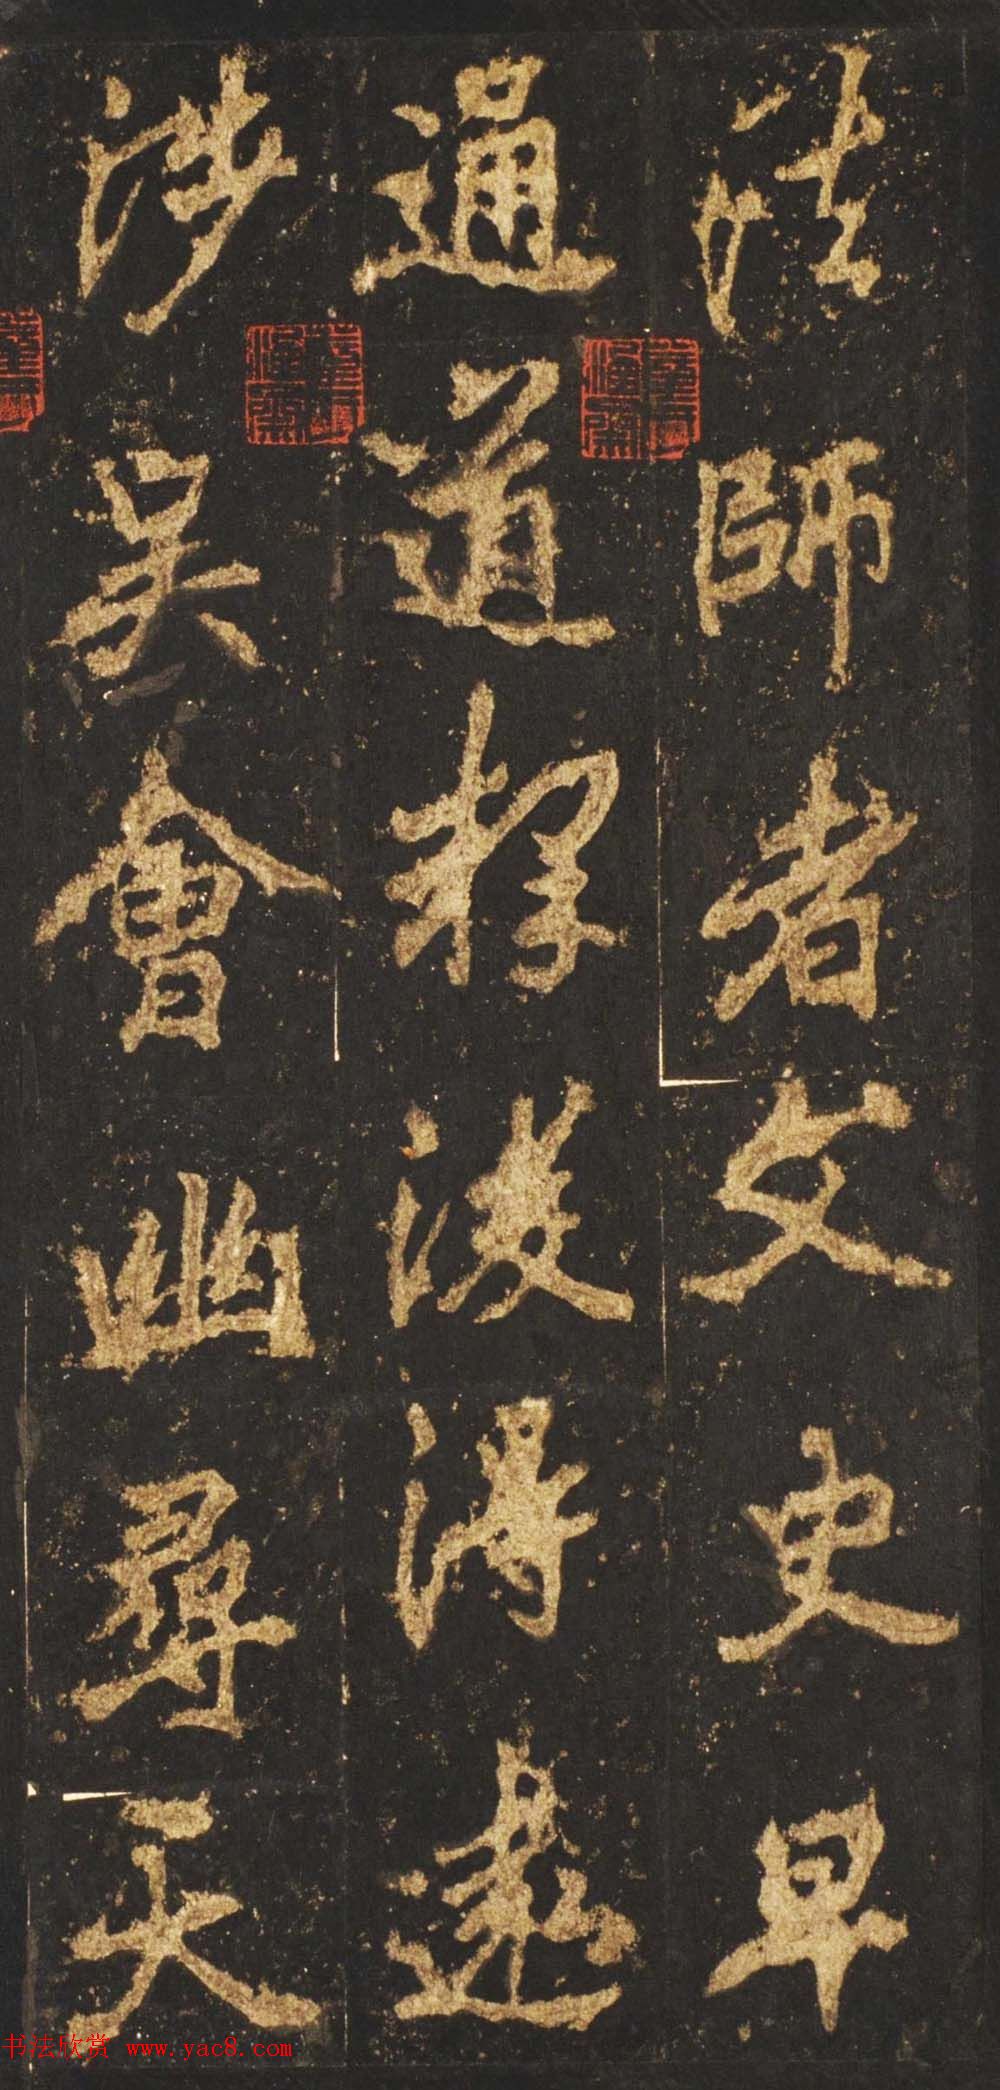 法師者文史早
通道釋後得遠
涉吴會幽尋天
书法欣赏 www.yac8.com